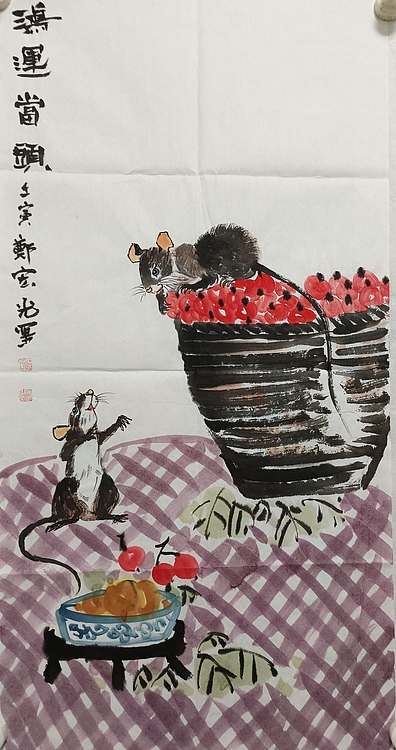 鴻運當頭 壬寅 鄭宏